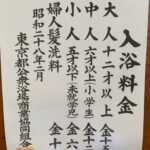 入浴料金
大人 十二才以上 金十
中人 六才以上(小学生) 金十
小人 五才以下(未就学児) 金六
婦人髪洗料 金十
昭和二十八年二月
東京都公衆浴場商業協同組合